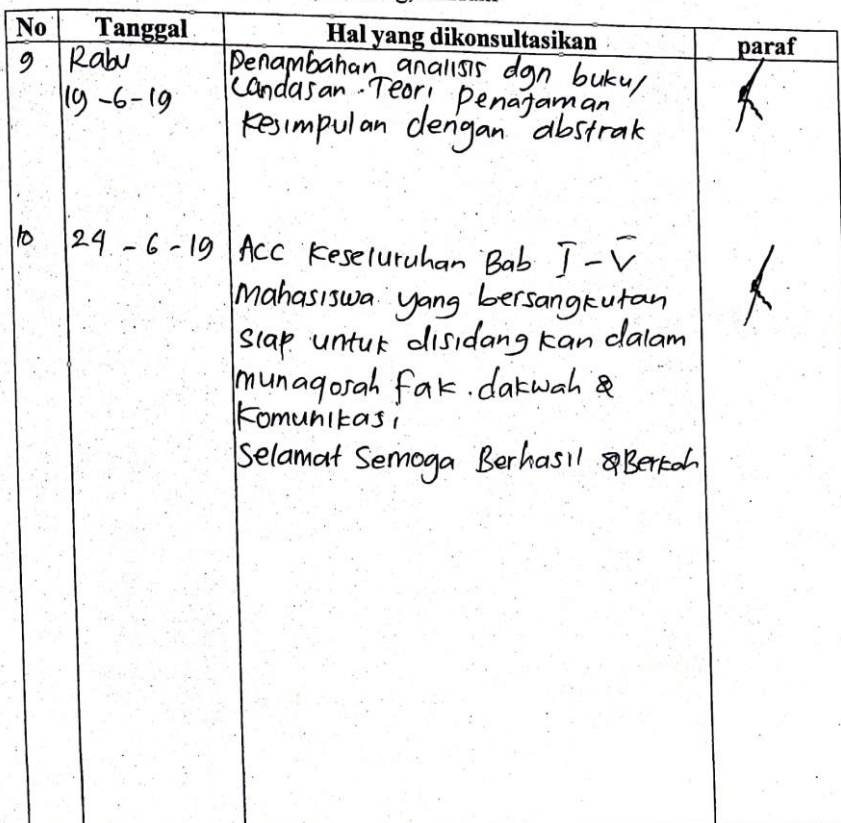 No Tanggal Hal yang dikonsultasikan paraf
9 Rabu Penambahan analisis dgn buku/
19-6-19 Landasan Teori Penajaman
Kesimpulan dengan abstrak
10 24-6-19 Acc Keseluruhan Bab I-V
Mahasiswa yang bersangkutan
siap untuk disidang kan dalam
munaqosah fak. dakwah &
Komunikasi
Selamat Semoga Berhasil & Berkah